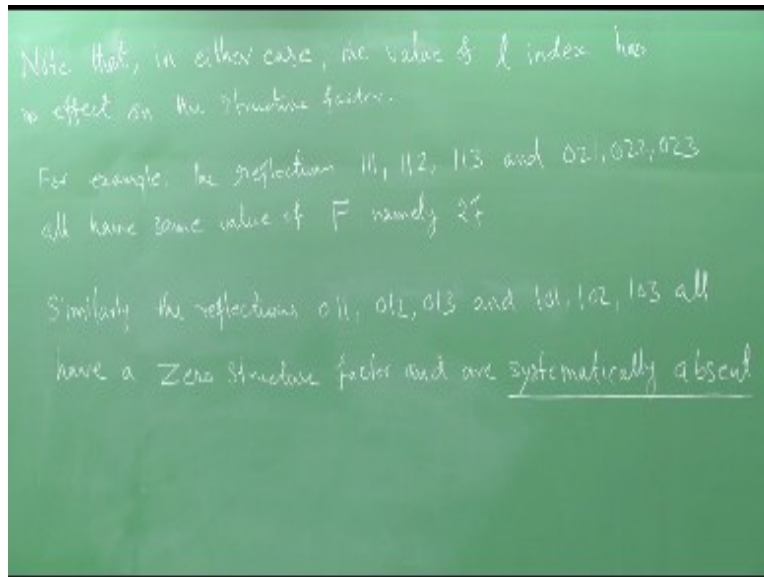 Note that, in either case, the value of l index has
no effect on the structure factor.
For example, the reflections 111, 112, 113 and 021, 022, 023
all have same value of F namely 2f
Similarly the reflections 011, 012, 013 and 101, 102, 103 all
have a Zero Structure factor and are systematically absent